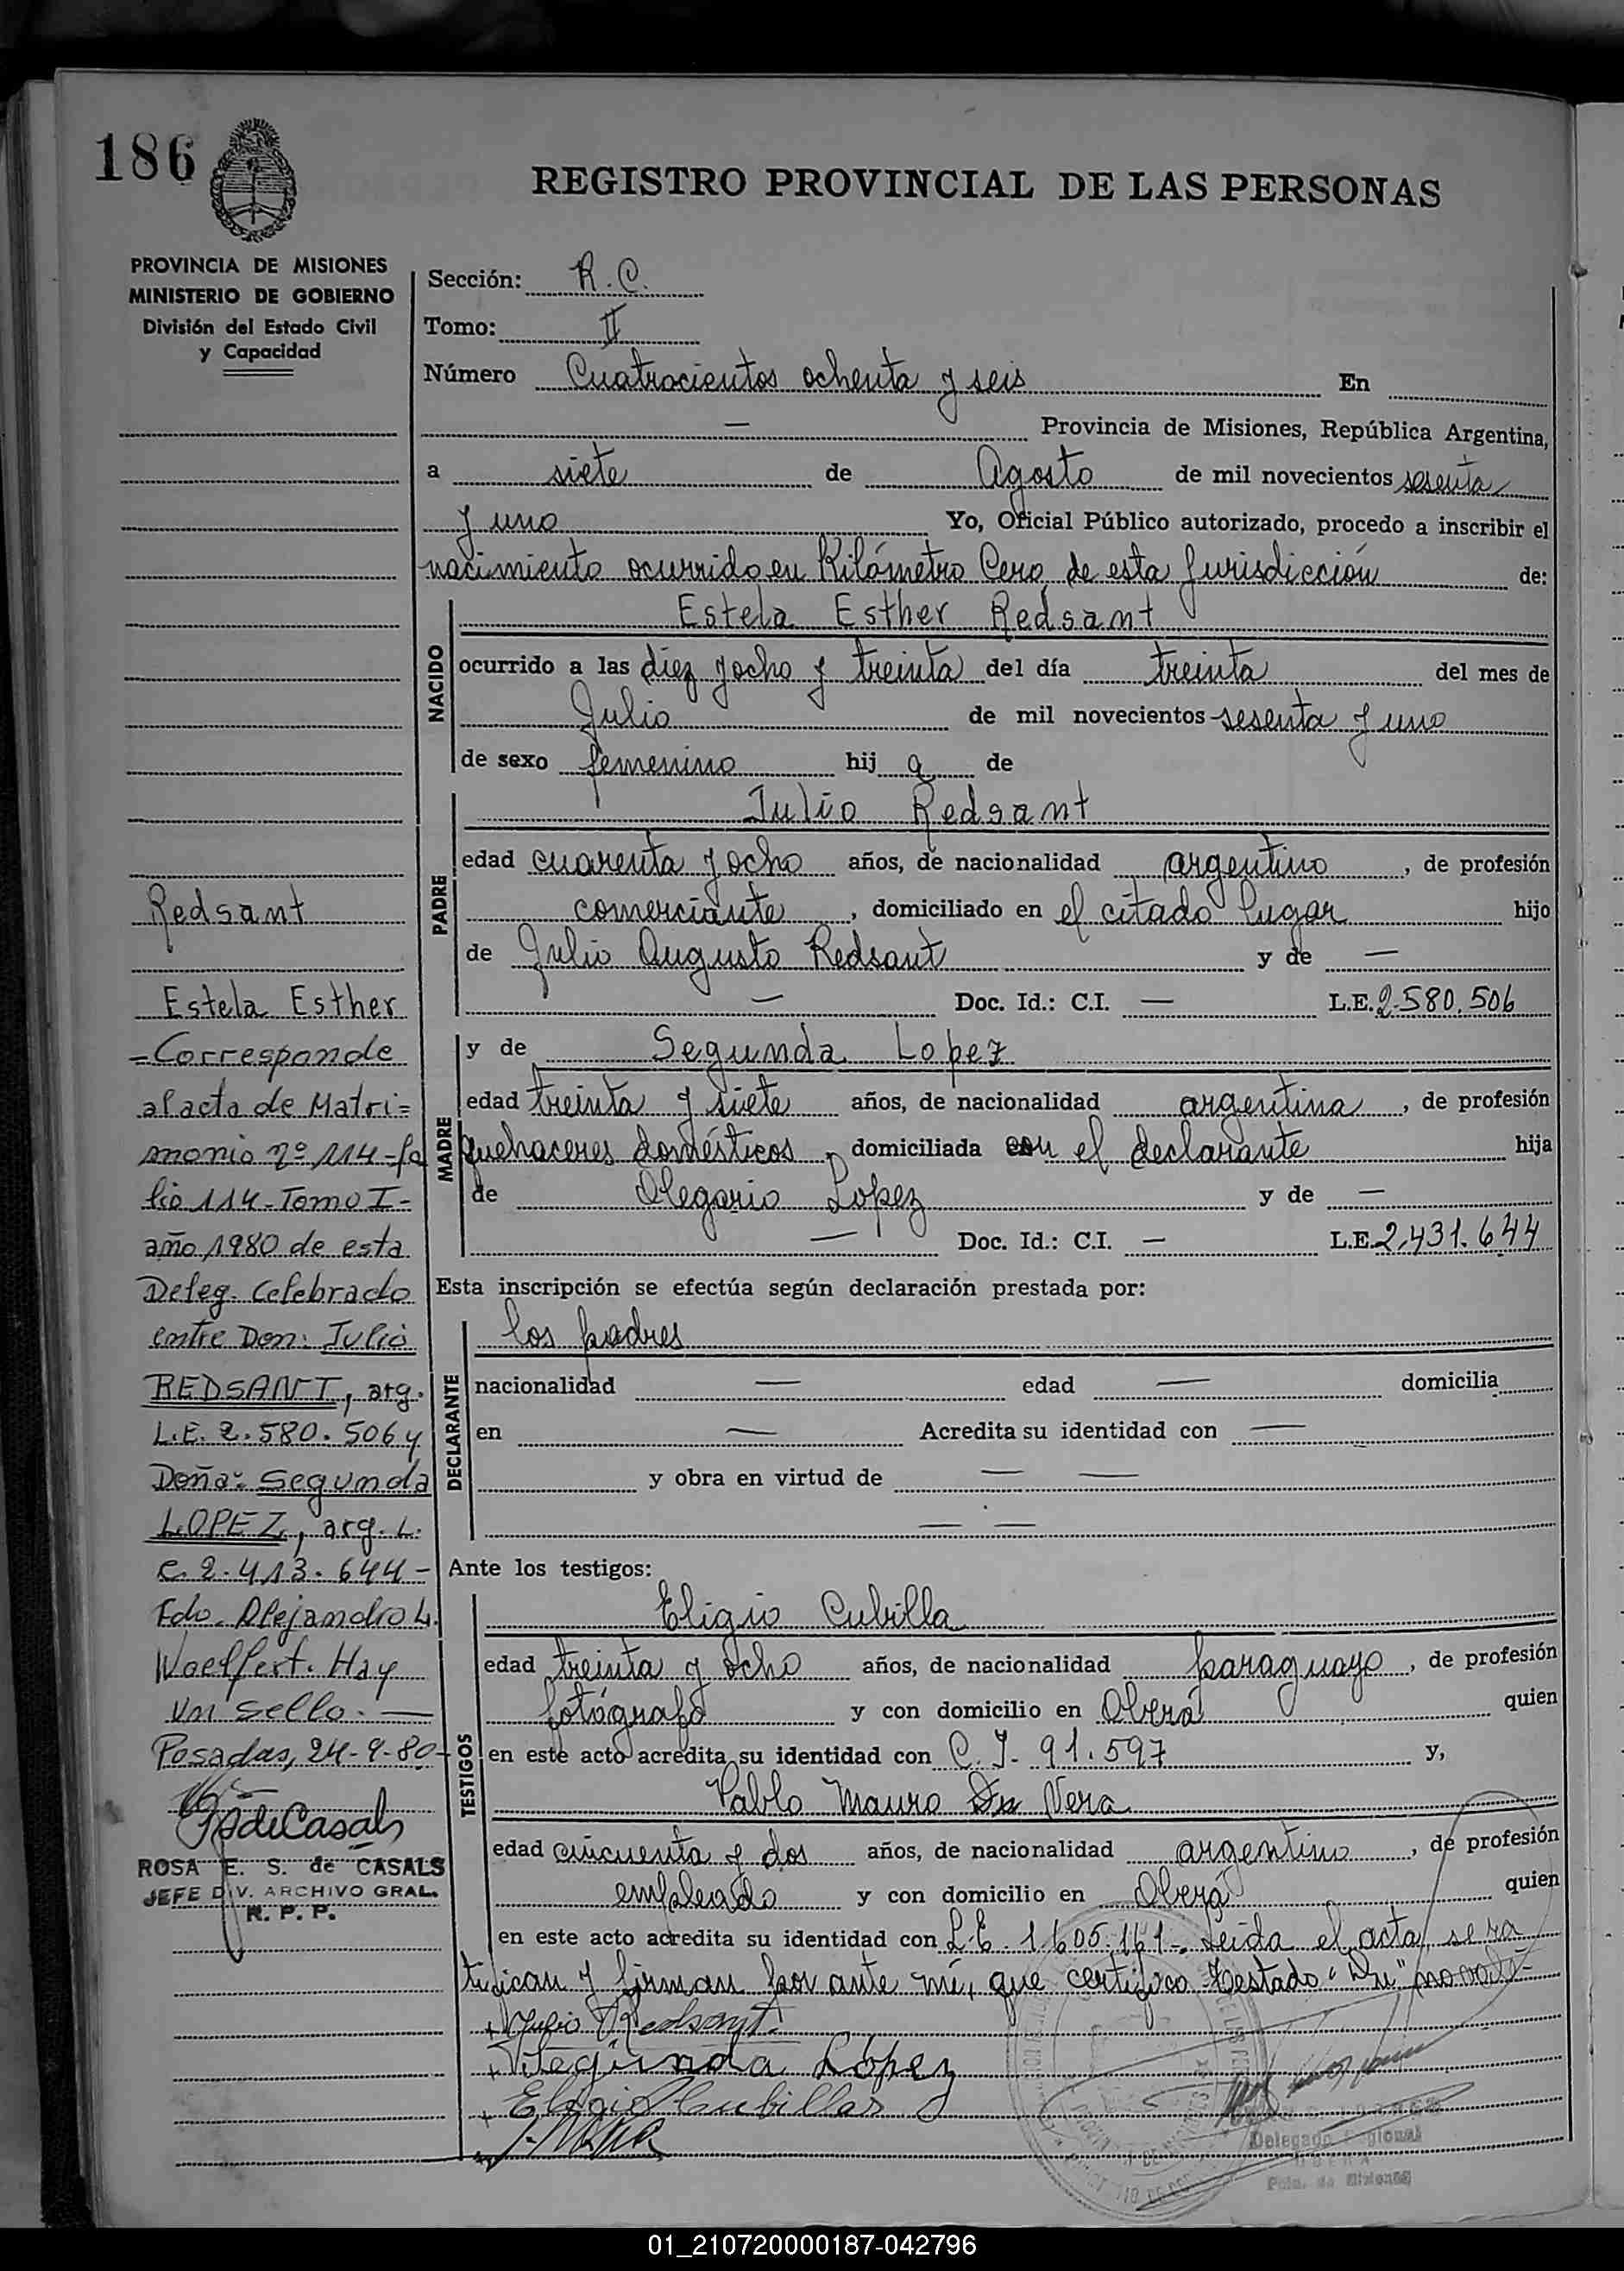 186
REGISTRO PROVINCIAL DE LAS PERSONAS
PROVINCIA DE MISIONES
MINISTERIO DE GOBIERNO
División del Estado Civil
y Capacidad
Redsant
Estela Esther
=Corresponde
al acta de Matri=
monio nº 114-fo
lio 114-Tomo I-
año 1980 de esta
Deleg. Celebrado
entre Don: Julio
REDSANT, arg.
L.E. 2.580.506 y
Doña: Segunda
LOPEZ, arg. L.
C. 2.413.644-
Fdo. Alejandro L.
Woelfert. Hay
un sello.—
Posadas, 24-9-80-
ROSA E. S. de CASALS
JEFE DIV. ARCHIVO GRAL.
R. P. P.
Sección: R.C.
Tomo: II
Número Cuatrocientos ochenta y seis En
— Provincia de Misiones, República Argentina,
a siete de Agosto de mil novecientos sesenta
y uno Yo, Oficial Público autorizado, procedo a inscribir el
nacimiento ocurrido en Kilómetro Cero de esta Jurisdicción de:
NACIDO
Estela Esther Redsant
ocurrido a las diez y ocho y treinta del día treinta del mes de
Julio de mil novecientos sesenta y uno
de sexo femenino hij a de
PADRE
Julio Redsant
edad cuarenta y ocho años, de nacionalidad argentino, de profesión
comerciante, domiciliado en el citado lugar hijo
de Julio Augusto Redsant y de —
— Doc. Id.: C.I. — L.E. 2.580.506
MADRE
y de Segunda Lopez
edad treinta y siete años, de nacionalidad argentina, de profesión
quehaceres domésticos, domiciliada con el declarante hija
de Olegario Lopez y de —
— Doc. Id.: C.I. — L.E. 2.431.644
Esta inscripción se efectúa según declaración prestada por:
DECLARANTE
los padres
nacionalidad — edad — domicilia
en — Acredita su identidad con —
y obra en virtud de — —
— —
Ante los testigos:
TESTIGOS
Eligio Cubilla
edad treinta y ocho años, de nacionalidad paraguayo, de profesión
fotógrafo y con domicilio en Oberá quien
en este acto acredita su identidad con C.I. 91.597 y,
Pablo Mauro Du Vera
edad cincuenta y dos años, de nacionalidad argentino, de profesión
empleado y con domicilio en Oberá quien
en este acto acredita su identidad con L.E. 1.605.161-. Leida el acta, se ra
tifican y firman por ante mí, que certifico. Testado "Du" no vale-
+ Julio Redsant.
+ Segunda Lópes
+ Eligio Cubillas
Delegado Regional
OBERA
Pcia. de Misiones
01_210720000187-042796